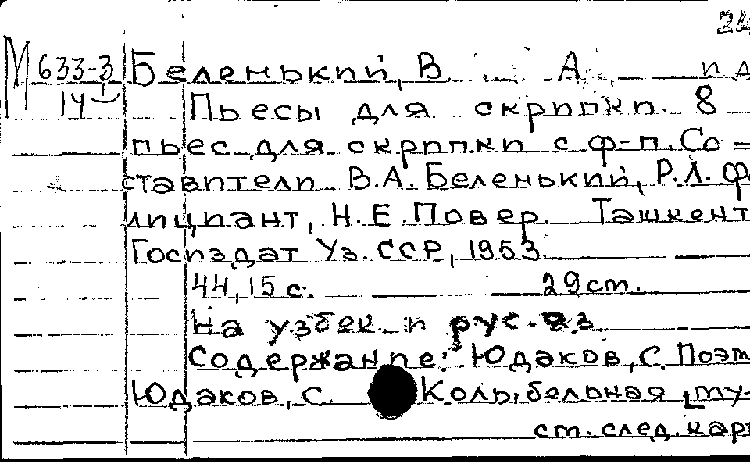 М 633-3
14
Беленький, В. А.,
Пьесы для скрипки. 8
пьес для скрипки с ф-п. Со-
ставители В.А. Беленький, Р.Л. Ф
лицпант, Н.Е. Повер. Ташкент
Госиздат Уз. ССР, 1953
44, 15 с. 29 ст.
На узбек и рус. яз
Содержание: Юдаков, С. Поэм
Юдаков, С. Колыбельная
см. след. кар